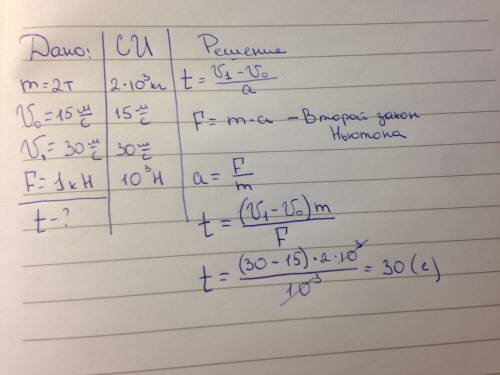 Дано:
m = 2т
V₀ = 15 м/с
V₁ = 30 м/с
F = 1кН
t - ?
СИ
2·10³кг
15 м/с
30 м/с
10³Н
Решение
t = (V₁ - V₀)/a
F = m·a - Второй закон
Ньютона
a = F/m
t = (V₁ - V₀)m/F
t = (30 - 15)·2·10³/10³ = 30 (с)